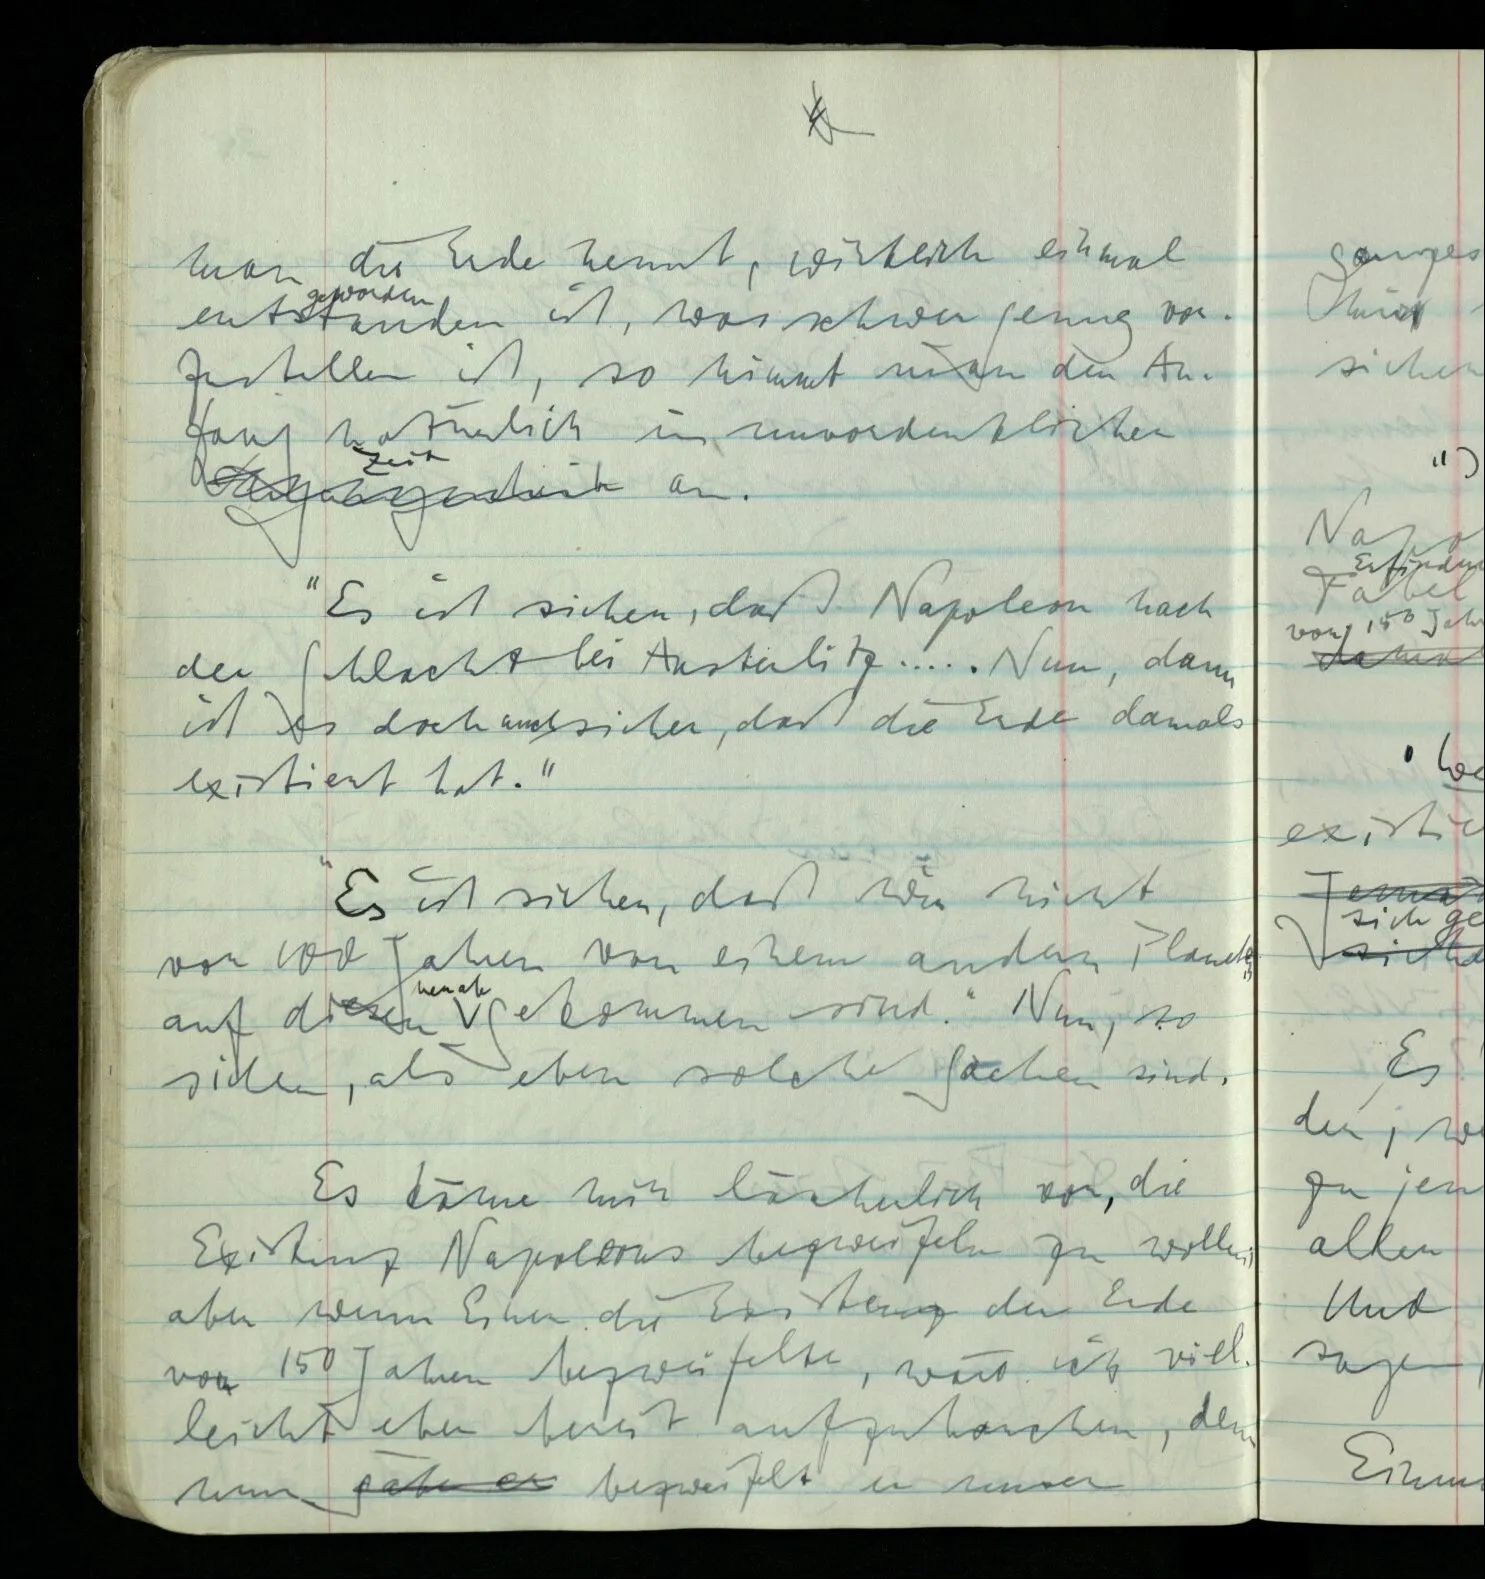 man die Erde nennt, wirklich einmal
geworden
entstanden ist, was schwer genug vor-
zustellen ist, so nimmt man den An-
fang natürlich in unvordenklicher
Zeit
Vergangenheit an.
"Es ist sicher, daß Napoleon nach
der Schlacht bei Austerlitz..... Nun, dann
ist es doch auch sicher, daß die Erde damals
existiert hat."
"Es ist sicher, daß wir nicht
vor 100 Jahren von einem andern Planeten
herab
auf diesen gekommen sind." Nun, so
sicher, als eben solche Sachen sind.
Es käme mir lächerlich vor, die
Existenz Napoleons bezweifeln zu wollen;
aber wenn Einer die Existenz der Erde
vor 150 Jahren bezweifelte, wäre ich viel-
leicht eher bereit aufzuhorchen, denn
nun gäbe er bezweifelt er unser
ganzes
sicher
Napo
Erfindu
Fabel
vor 150 Jahr
existie
sich ge
Es
der, we
zu jen
allen
Und
sagen,